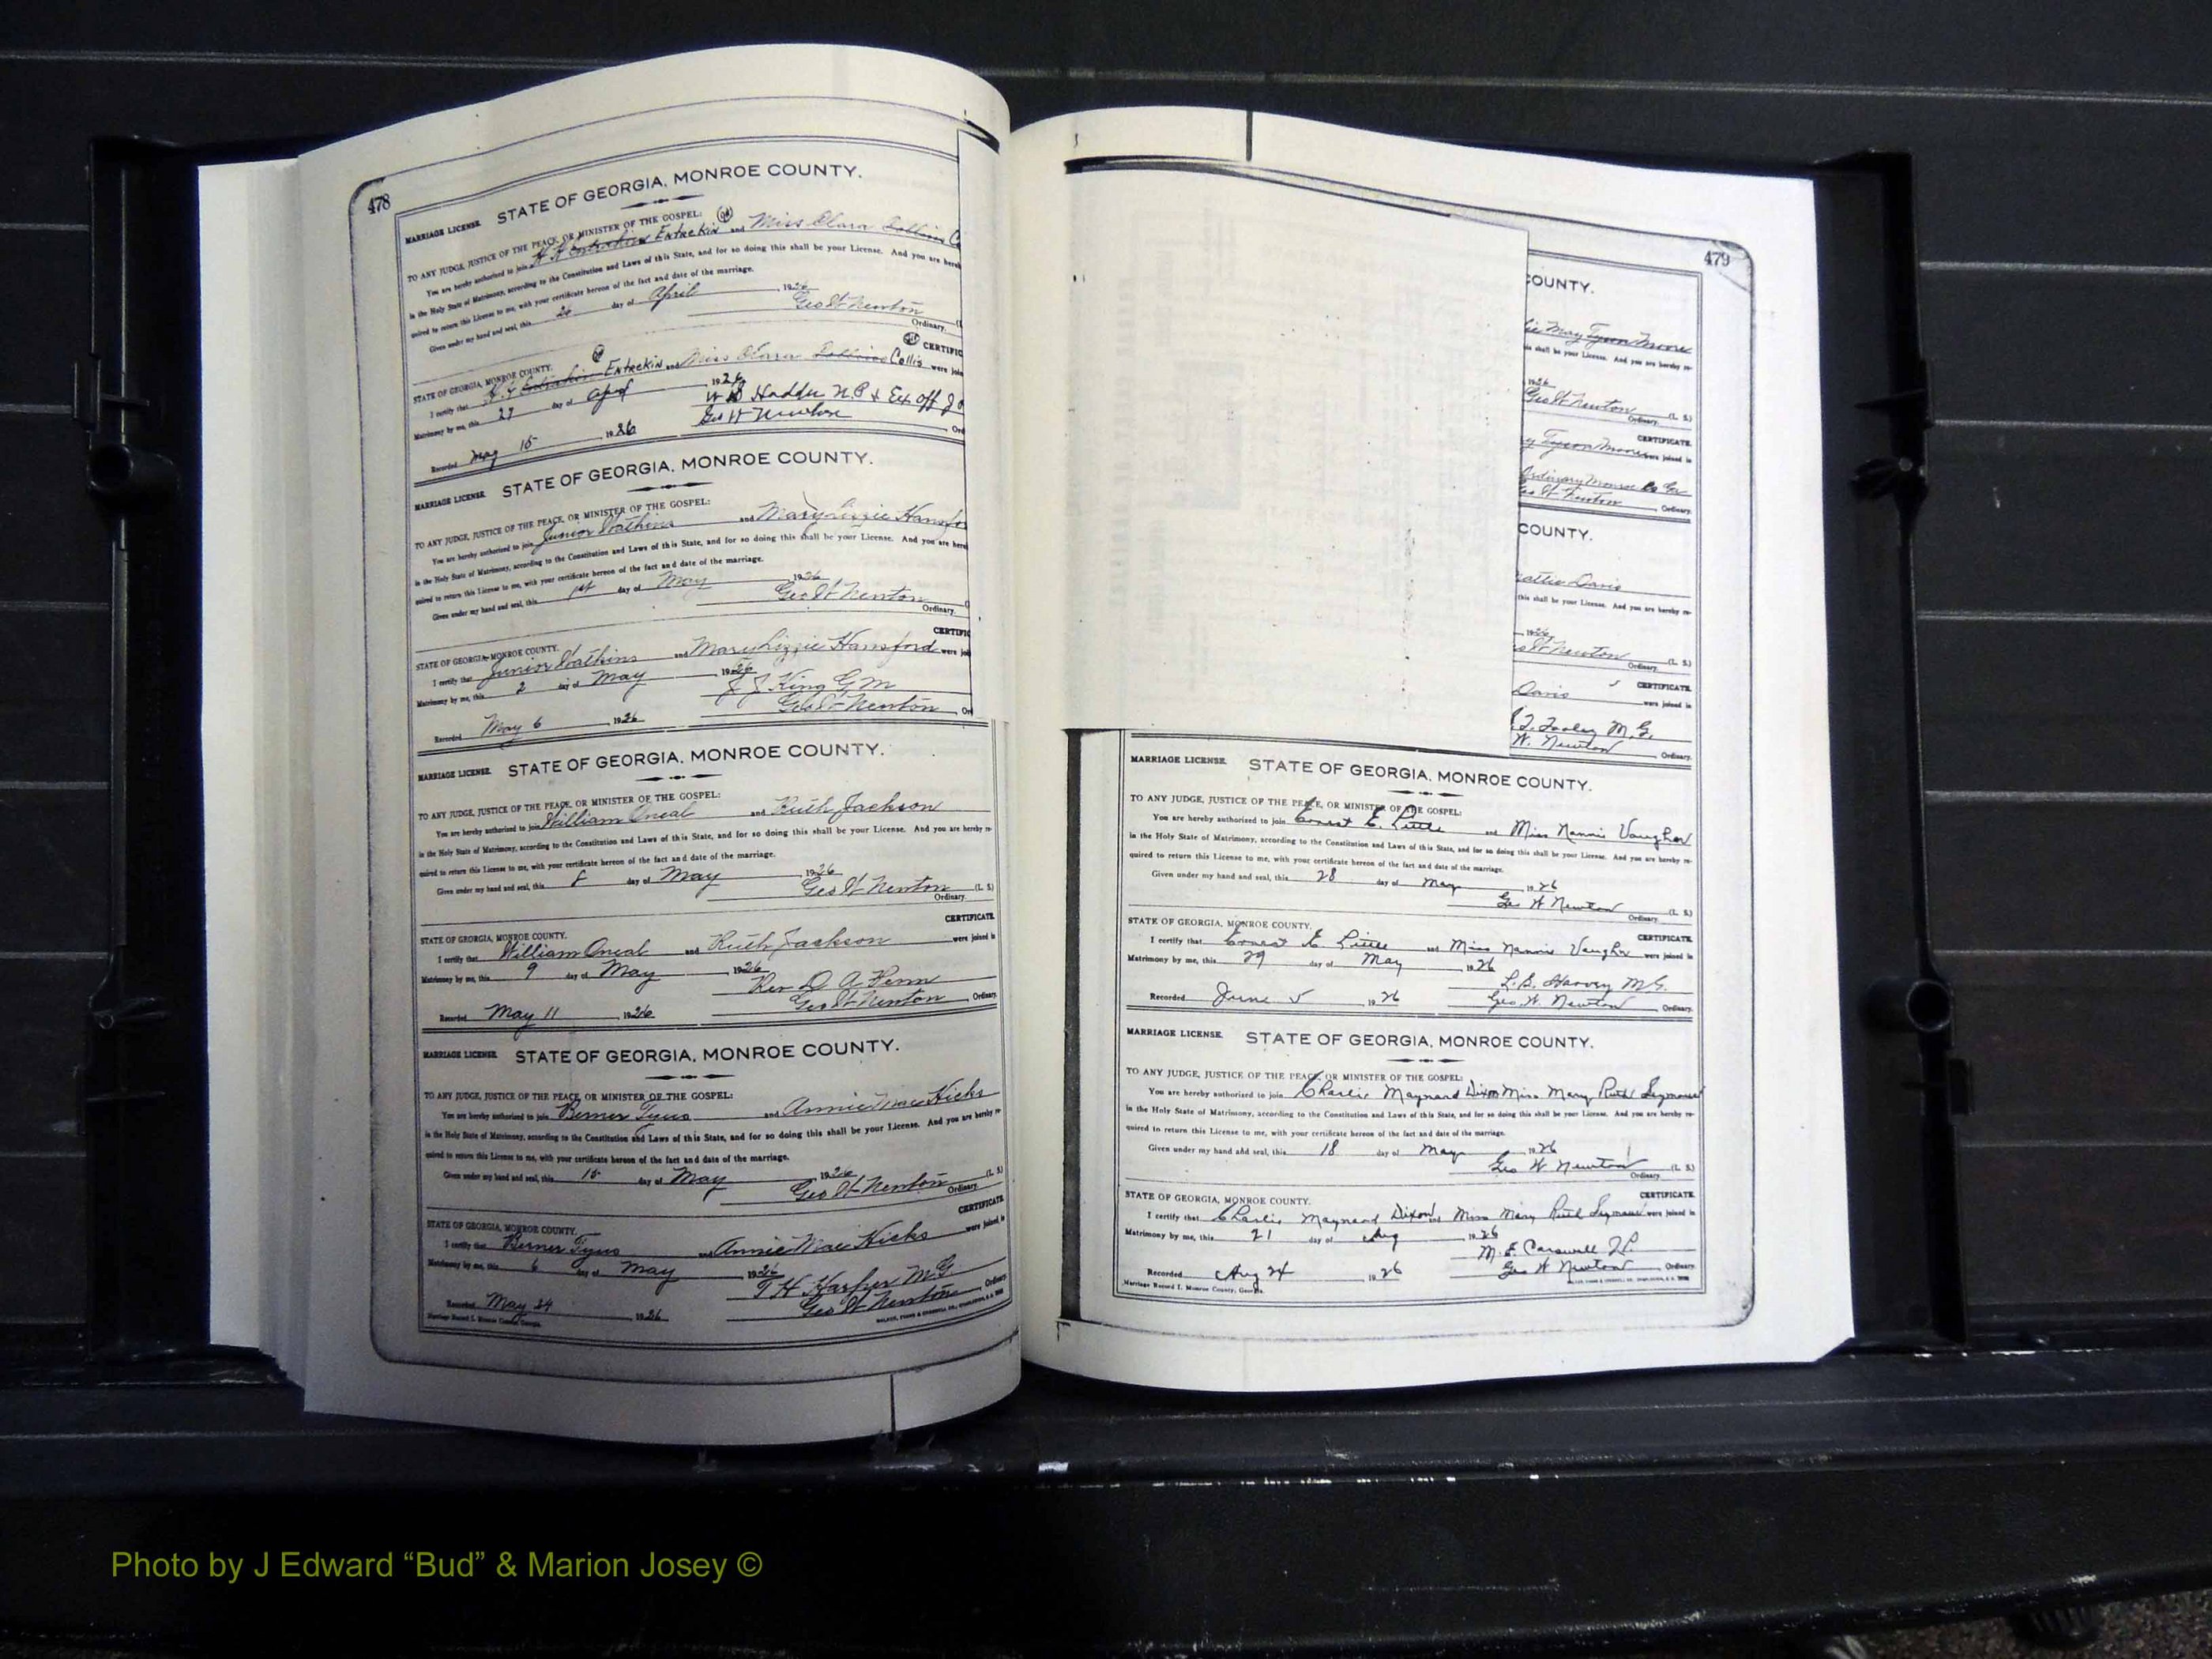 478
STATE OF GEORGIA, MONROE COUNTY.
MARRIAGE LICENSE.
TO ANY JUDGE, JUSTICE OF THE PEACE, OR MINISTER OF THE GOSPEL:
You are hereby authorized to join Entrekin and Miss Clara
in the Holy State of Matrimony, according to the Constitution and Laws of this State, and for so doing this shall be your License. And you are hereb
quired to return this License to me, with your certificate hereon of the fact and date of the marriage.
Given under my hand and seal, this 26 day of April 1926
Geo W Newton
Ordinary.
CERTIFIC
STATE OF GEORGIA, MONROE COUNTY.
I certify that Entrekin and Miss Clara Collis were join
Matrimony by me, this 27 day of Apl 1926
N.P & Ex off J
Recorded May 15 1926 Geo W Newton Ord
STATE OF GEORGIA, MONROE COUNTY.
MARRIAGE LICENSE.
TO ANY JUDGE, JUSTICE OF THE PEACE, OR MINISTER OF THE GOSPEL:
You are hereby authorized to join Junior Watkins and Mary Lizzie Hansfo
in the Holy State of Matrimony, according to the Constitution and Laws of this State, and for so doing this shall be your License. And you are here
quired to return this License to me, with your certificate hereon of the fact and date of the marriage.
Given under my hand and seal, this 1st day of May 1926
Geo W Newton
Ordinary.
CERTIFIC
STATE OF GEORGIA, MONROE COUNTY.
I certify that Junior Watkins and Mary Lizzie Hansford were joi
Matrimony by me, this 2 day of May 1926
J J King G M
Recorded May 6 1926 Geo W Newton Or
STATE OF GEORGIA, MONROE COUNTY.
MARRIAGE LICENSE.
TO ANY JUDGE, JUSTICE OF THE PEACE, OR MINISTER OF THE GOSPEL:
You are hereby authorized to join William Oneal and Ruth Jackson
in the Holy State of Matrimony, according to the Constitution and Laws of this State, and for so doing this shall be your License. And you are hereby re-
quired to return this License to me, with your certificate hereon of the fact and date of the marriage.
Given under my hand and seal, this 8 day of May 1926
Geo W Newton (L. S.)
Ordinary.
CERTIFICATE.
STATE OF GEORGIA, MONROE COUNTY.
I certify that William Oneal and Ruth Jackson were joined in
Matrimony by me, this 9 day of May 1926
Rev D A
Recorded May 11 1926 Geo W Newton Ordinary.
MARRIAGE LICENSE. STATE OF GEORGIA, MONROE COUNTY.
TO ANY JUDGE, JUSTICE OF THE PEACE, OR MINISTER OF THE GOSPEL:
You are hereby authorized to join Berner Tyus and Annie Mae Hicks
in the Holy State of Matrimony, according to the Constitution and Laws of this State, and for so doing this shall be your License. And you are hereby re-
quired to return this License to me, with your certificate hereon of the fact and date of the marriage.
Given under my hand and seal, this 15 day of May 1926
Geo W Newton (L. S.)
Ordinary.
CERTIFICATE.
STATE OF GEORGIA, MONROE COUNTY.
I certify that Berner Tyus and Annie Mae Hicks were joined in
Matrimony by me, this 6 day of May 1926
T H Harper M.G.
Recorded May 24 1926 Geo W Newton Ordinary.
Marriage Record I. Monroe County, Georgia.
479
OUNTY.
ie May Tyson Moore
is shall be your License. And you are hereby re-
1926
Geo W Newton (L. S.)
Ordinary.
CERTIFICATE.
y Tyson Moore were joined in
Ordinary Monroe Co Ga
Geo W Newton
Ordinary.
COUNTY.
attie Davis
this shall be your License. And you are hereby re-
1926
W Newton (L. S.)
Ordinary.
CERTIFICATE.
Davis were joined in
M.G.
W. Newton Ordinary.
MARRIAGE LICENSE. STATE OF GEORGIA, MONROE COUNTY.
TO ANY JUDGE, JUSTICE OF THE PEACE, OR MINISTER OF THE GOSPEL:
You are hereby authorized to join Ernest E. Little and Miss Nannie Vaughn
in the Holy State of Matrimony, according to the Constitution and Laws of this State, and for so doing this shall be your License. And you are hereby re-
quired to return this License to me, with your certificate hereon of the fact and date of the marriage.
Given under my hand and seal, this 28 day of May 1926
Geo W Newton (L. S.)
Ordinary.
CERTIFICATE.
STATE OF GEORGIA, MONROE COUNTY.
I certify that Ernest E. Little and Miss Nannie Vaughn were joined in
Matrimony by me, this 29 day of May 1926
L.S. Harvey M.G.
Recorded June 5 1926 Geo. W. Newton Ordinary.
MARRIAGE LICENSE. STATE OF GEORGIA, MONROE COUNTY.
TO ANY JUDGE, JUSTICE OF THE PEACE, OR MINISTER OF THE GOSPEL:
You are hereby authorized to join Charlie Maynard Dixon Miss Mary Ruth Seymour
in the Holy State of Matrimony, according to the Constitution and Laws of this State, and for so doing this shall be your License. And you are hereby re-
quired to return this License to me, with your certificate hereon of the fact and date of the marriage.
Given under my hand and seal, this 18 day of May 1926
Geo W Newton (L. S.)
Ordinary.
CERTIFICATE.
STATE OF GEORGIA, MONROE COUNTY.
I certify that Charlie Maynard Dixon and Miss Mary Ruth Seymour were joined in
Matrimony by me, this 21 day of Aug 1926
M. E. Carswell J.P.
Recorded Aug 24 1926 Geo W Newton Ordinary.
Marriage Record I. Monroe County, Georgia.
Photo by J Edward “Bud” & Marion Josey ©